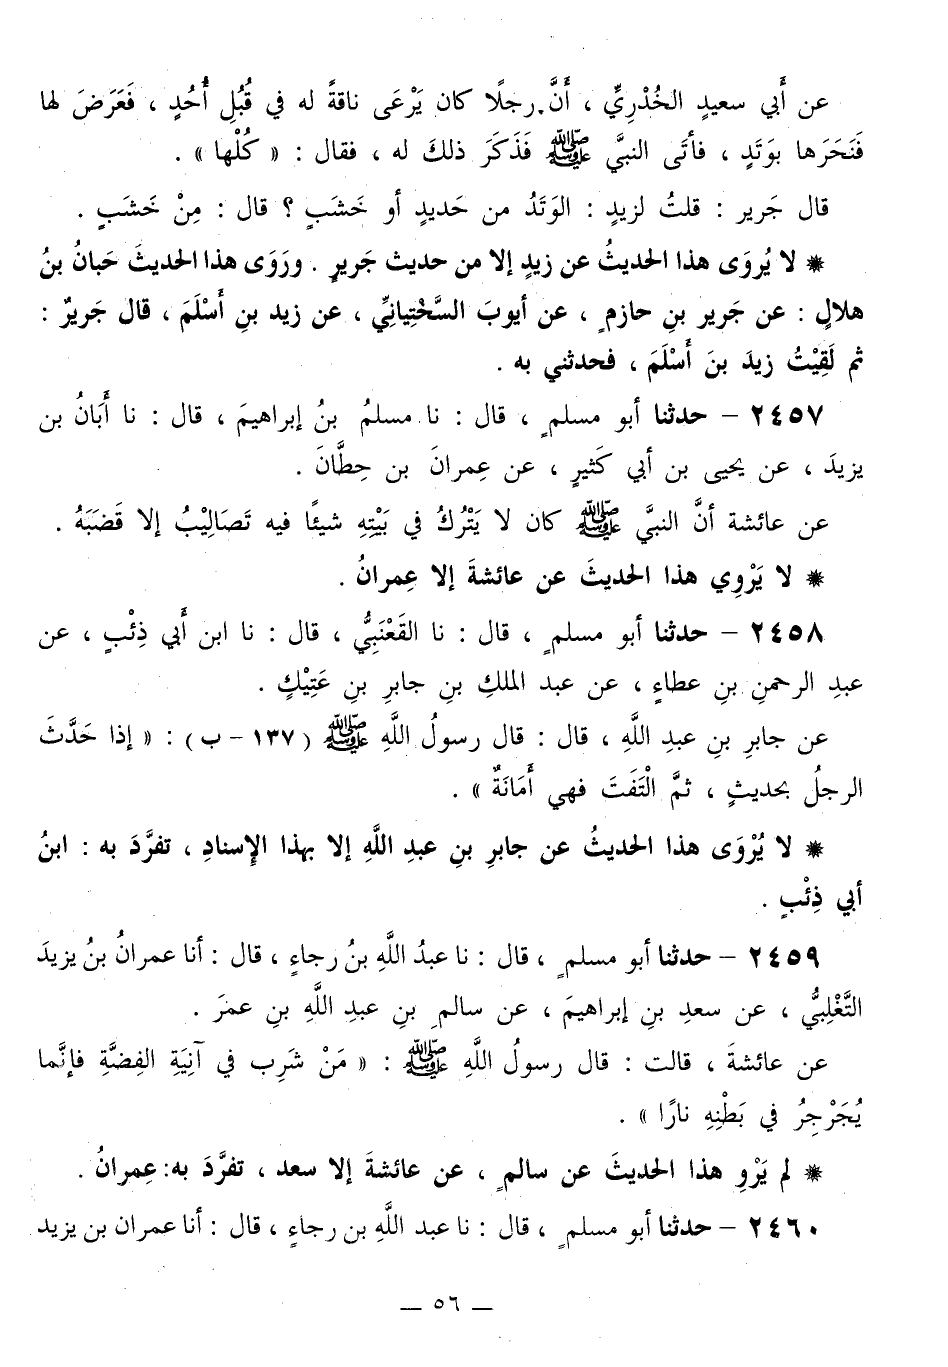 عن أَبي سعيدٍ الخُدْرِيِّ ، أَنَّ رجلًا كان يَرْعَى ناقةً له في قُبُلِ أُحُدٍ ، فَعَرَضَ لها
فَنَحَرَها بوَتَدٍ ، فأتَى النبيَّ ﷺ فَذَكَرَ ذلكَ له ، فقال : « كُلْها » .
قال جَرير : قلتُ لزيدٍ : الوَتَدُ من حَديدٍ أو خَشَبٍ ؟ قال : مِنْ خَشَبٍ .
* لا يُروَى هذا الحديثُ عن زيدٍ إلا من حديث جَريرٍ . ورَوَى هذا الحديثَ حَبانُ بنُ
هلالٍ : عن جَرير بنِ حازمٍ ، عن أيوبَ السَّخْتِيانِيِّ ، عن زيد بنِ أَسْلَمَ ، قال جَريرٌ :
ثم لَقِيْتُ زيدَ بنَ أَسْلَمَ ، فحدثني به .
٢٤٥٧ – حدثنا أبو مسلمٍ ، قال : نا مسلمُ بنُ إبراهيمَ ، قال : نا أَبَانُ بن
يزيدَ ، عن يحيى بن أبي كَثيرٍ ، عن عِمرانَ بن حِطَّانَ .
عن عائشة أنَّ النبيَّ ﷺ كان لا يَتْرُكُ في بَيْتِهِ شيئًا فيه تَصَالِيْبُ إلا قَضَبَهُ .
* لا يَرْوِي هذا الحديثَ عن عائشةَ إلا عِمرانُ .
٢٤٥٨ – حدثنا أبو مسلمٍ ، قال : نا القَعْنَبِيُّ ، قال : نا ابن أَبي ذِئْبٍ ، عن
عبدِ الرحمنِ بنِ عطاءٍ ، عن عبد الملكِ بنِ جابرِ بنِ عَتِيْكٍ .
عن جابرِ بنِ عبدِ اللَّهِ ، قال : قال رسولُ اللَّهِ ﷺ ( ١٣٧ – ب ) : « إذا حَدَّثَ
الرجلُ بحديثٍ ، ثمَّ الْتَفَتَ فهي أَمَانَةٌ » .
* لا يُرْوَى هذا الحديثُ عن جابرِ بنِ عبدِ اللَّهِ إلا بهذا الإسنادِ ، تفرَّدَ به : ابنُ
أبي ذِئْبٍ .
٢٤٥٩ – حدثنا أبو مسلمٍ ، قال : نا عبدُ اللَّهِ بنُ رجاءٍ ، قال : أنا عمرانُ بنُ يزيدَ
التَّغْلِبيُّ ، عن سعدِ بنِ إبراهيمَ ، عن سالمِ بنِ عبدِ اللَّهِ بنِ عمرَ .
عن عائشةَ ، قالت : قال رسولُ اللَّهِ ﷺ : « مَنْ شَرِب في آنِيَةِ الفِضَّةِ فإنَّما
يُجَرْجِرُ في بَطْنِهِ نارًا » .
* لم يَرْوِ هذا الحديثَ عن سالمٍ ، عن عائشةَ إلا سعد ، تفرَّدَ به: عِمرانُ .
٢٤٦٠ – حدثنا أبو مسلمٍ ، قال : نا عبد اللَّهِ بن رجاءٍ ، قال : أنا عمران بن يزيد
— ٥٦ —